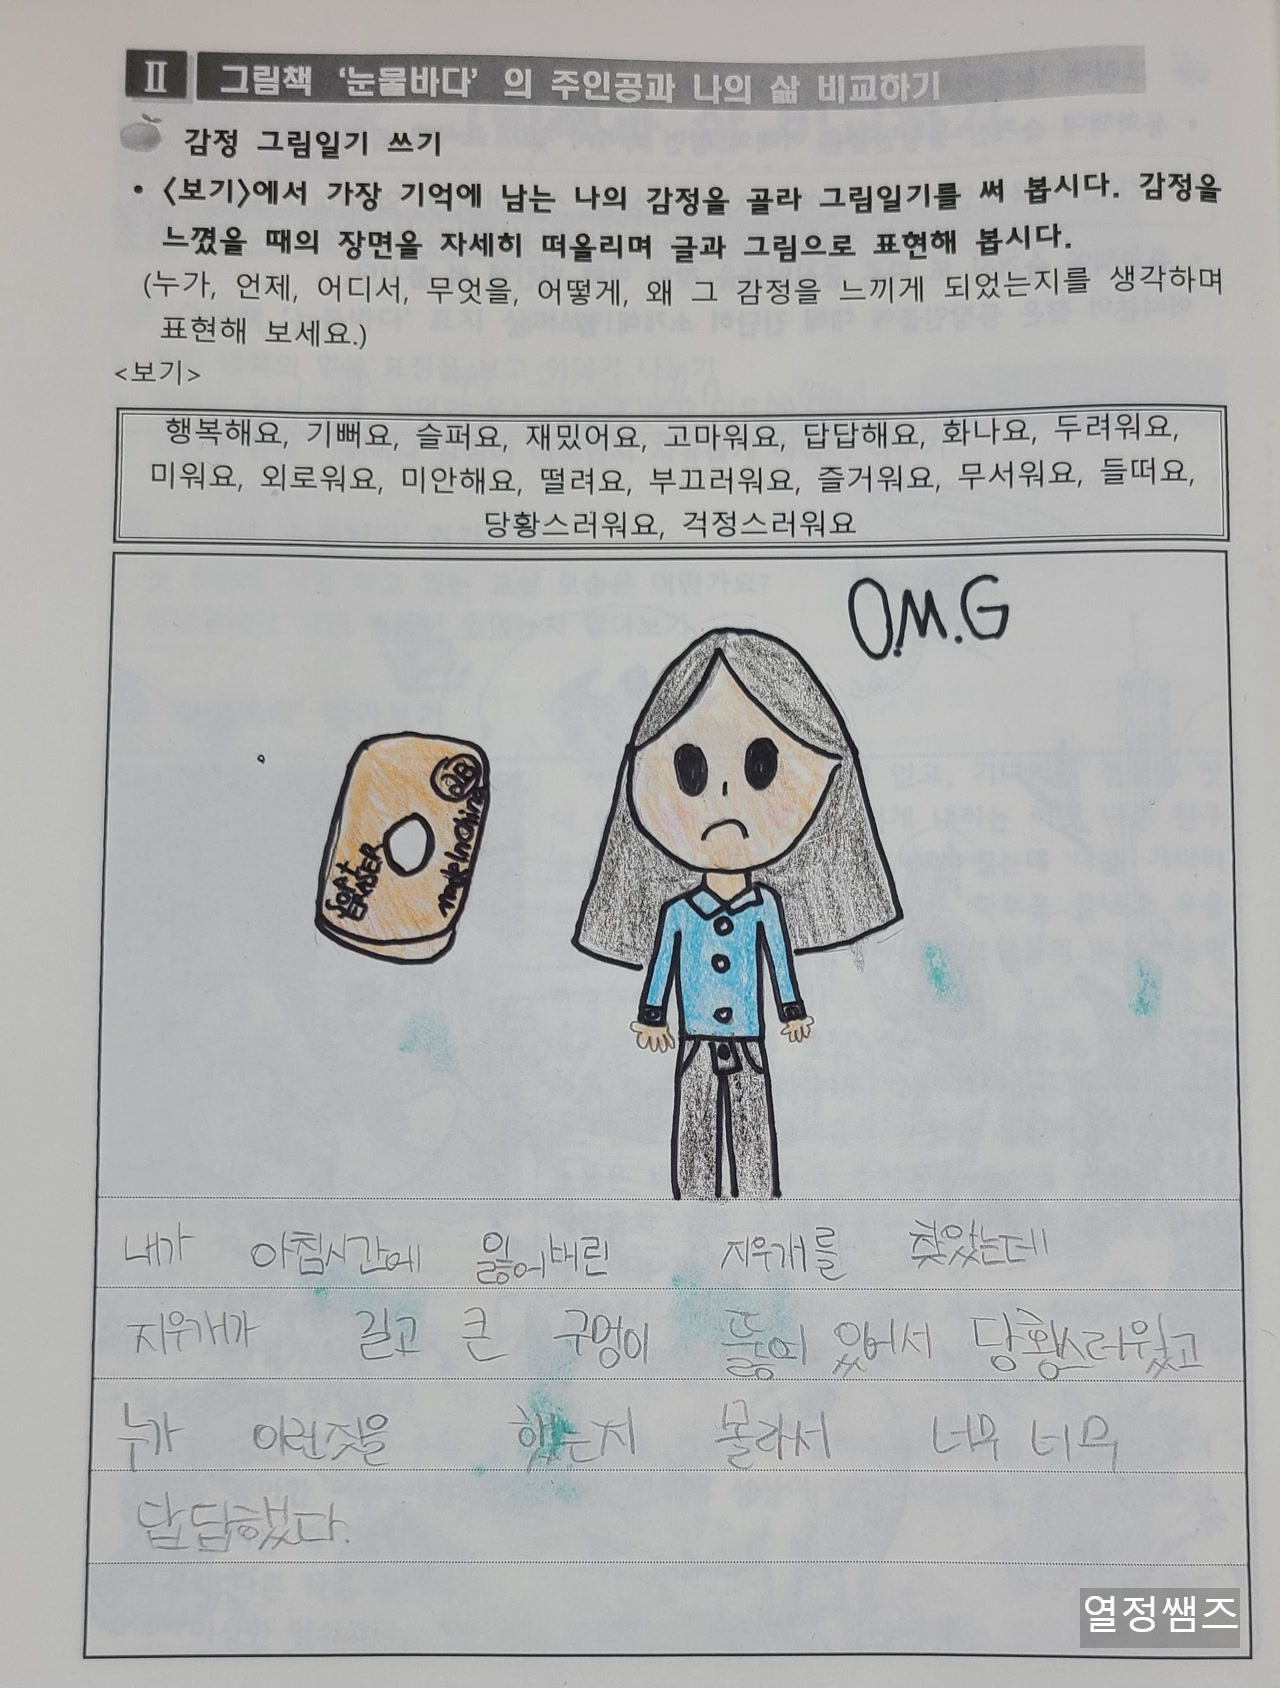 Ⅱ 그림책 '눈물바다' 의 주인공과 나의 삶 비교하기
감정 그림일기 쓰기
• <보기>에서 가장 기억에 남는 나의 감정을 골라 그림일기를 써 봅시다. 감정을
느꼈을 때의 장면을 자세히 떠올리며 글과 그림으로 표현해 봅시다.
(누가, 언제, 어디서, 무엇을, 어떻게, 왜 그 감정을 느끼게 되었는지를 생각하며
표현해 보세요.)
<보기>
행복해요, 기뻐요, 슬퍼요, 재밌어요, 고마워요, 답답해요, 화나요, 두려워요,
미워요, 외로워요, 미안해요, 떨려요, 부끄러워요, 즐거워요, 무서워요, 들떠요,
당황스러워요, 걱정스러워요
O.M.G
2B
SOFT
ERASER
made in China
내가 아침시간에 잃어버린 지우개를 찾았는데
지우개가 길고 큰 구멍이 뚫어 있어서 당황스러웠고
누가 이런짓을 했는지 몰라서 너무 너무
답답했다.
열정쌤즈